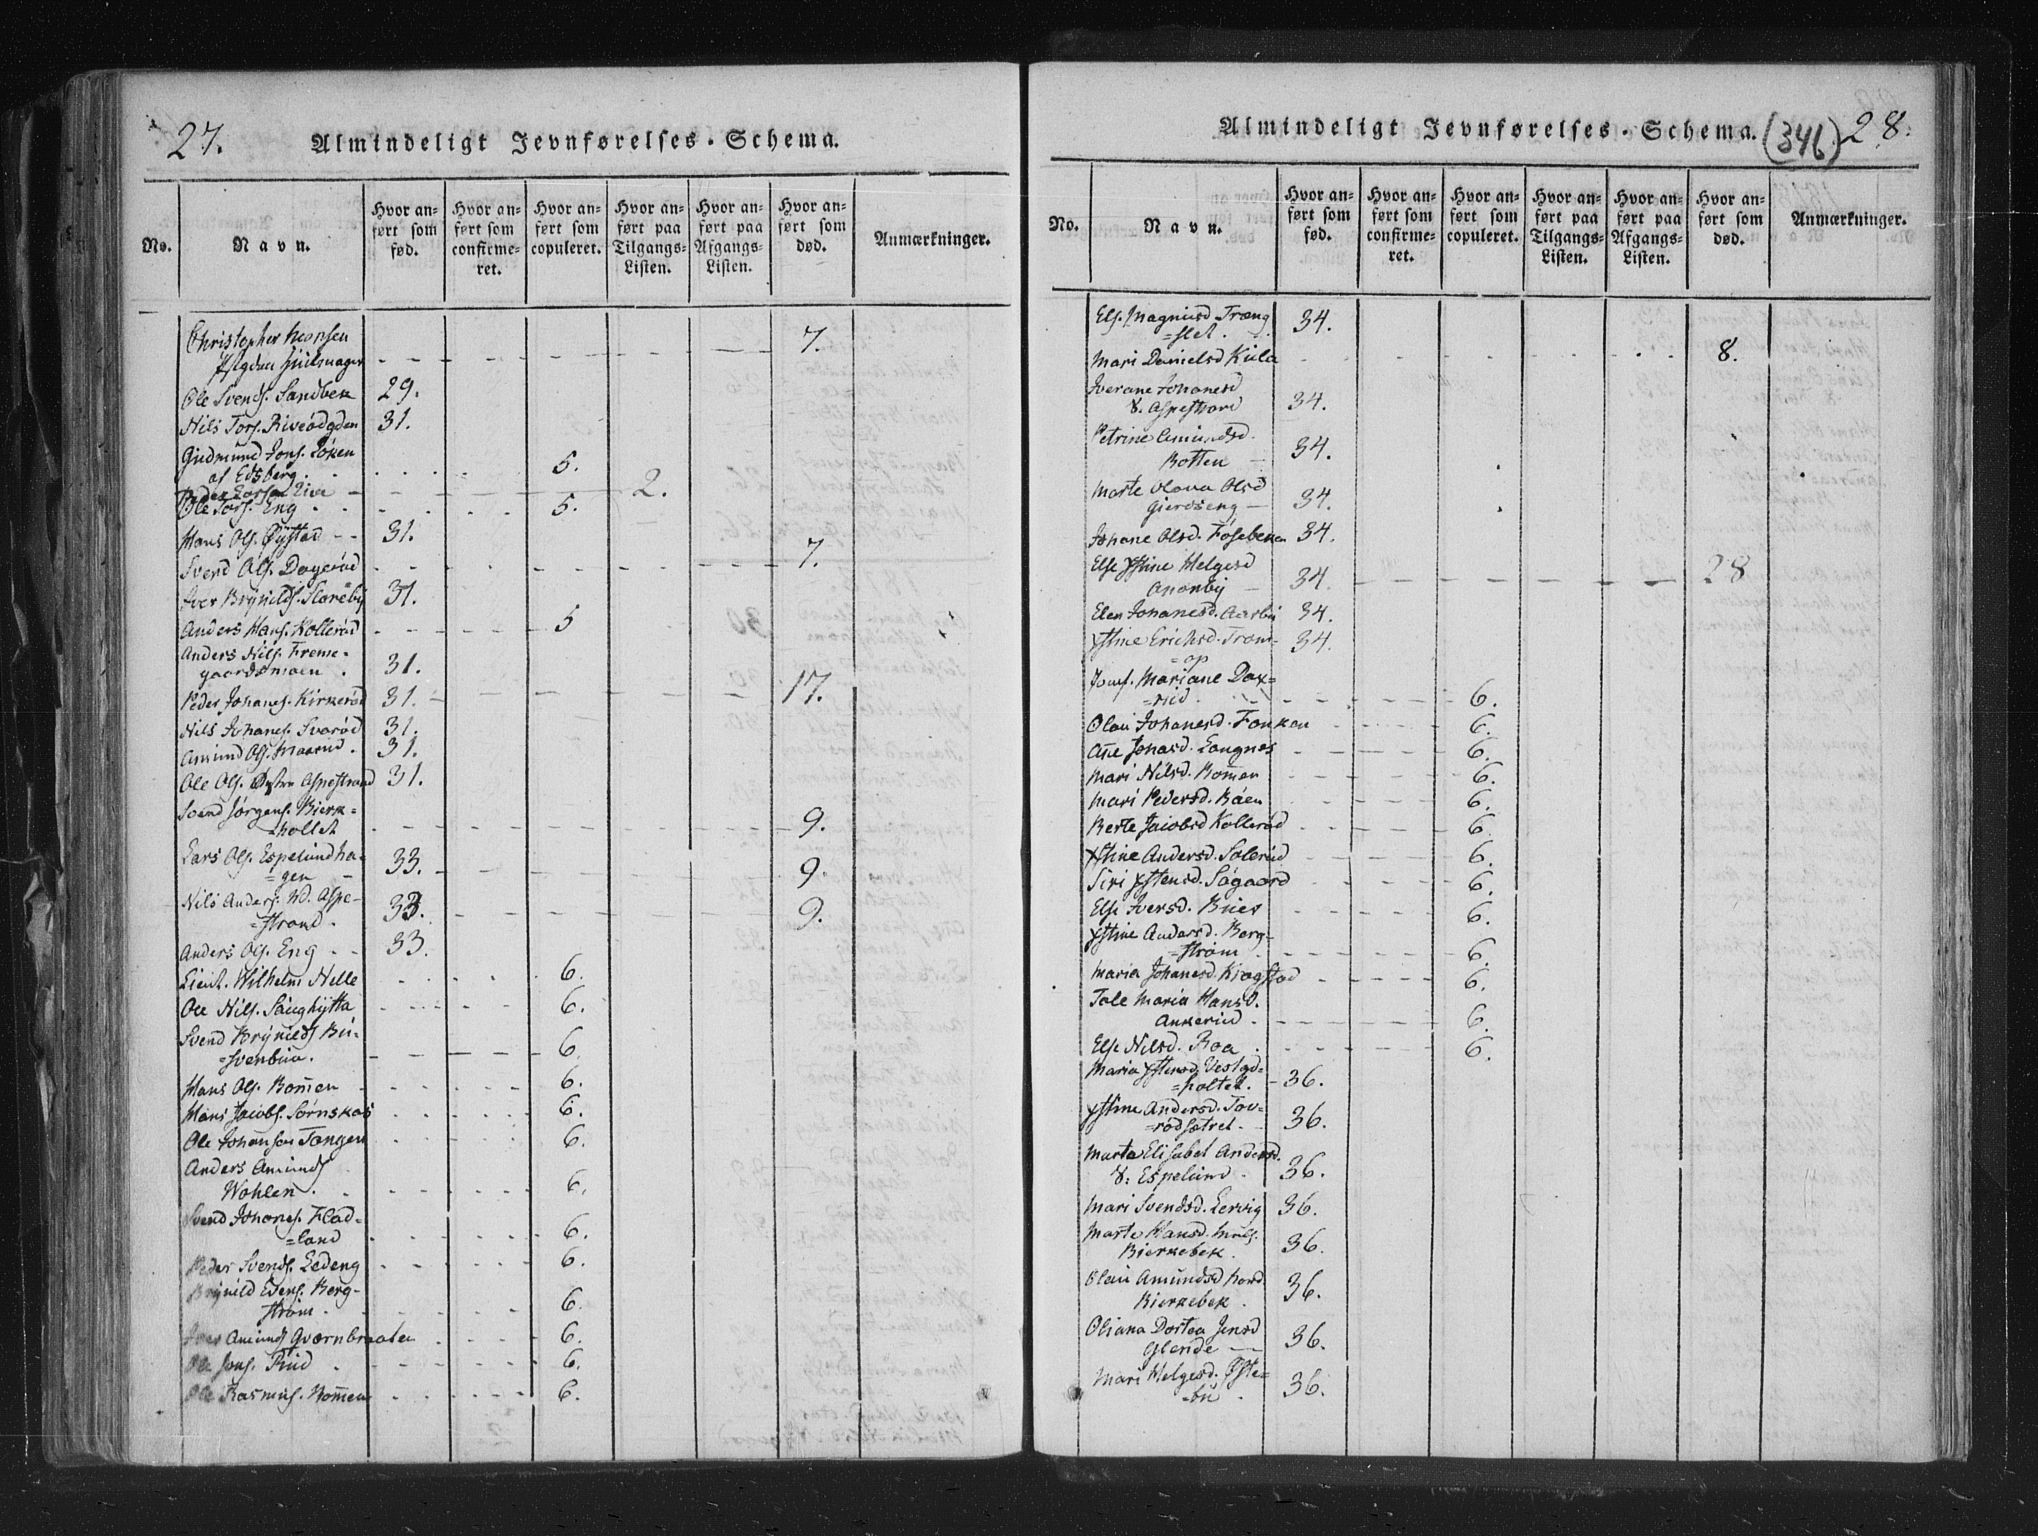 27.
Almindeligt Jevnførelses-Schema.
No.
Navn.
Hvor anført som fød.
Hvor anført som confirmeret.
Hvor anført som copuleret.
Hvor anført paa Tilgangs-Listen.
Hvor anført paa Afgangs-Listen.
Hvor anført som død.
Anmærkninger.
Christopher
7.
Ole Svends. Sandbek 29.
Nils Tors. Riveødgden 31.
Gudmund Jons. Löken
af Edsberg. 5.
Peder Larsen 2.
Ole Tors. Eng 5.
Hans Ols. Øystad 31.
Svend Ols. Dagerød 7.
Iver Brynilds. Sloreby 31.
Anders Hans. Kollerød 5
Anders Nils. Freme-
gaardsmoen. 31.
Peder Johanes. Kirkerød 31. 17.
Nils Johanes. Svarød 31.
Amund Ols. 31.
Ole Ols. Østre Aspestrand 31.
Svend Jörgens. Bierk-
=hollet 9.
Lars Ols. Espelundha-
=gen 33. 9.
Nils Anders. Nd. Aspe-
=strand. 33. 9.
Anders Ols. Eng 33.
Lieut. Wilhelm Nelle 6.
Ole Nils. Saughytta 6.
Svend Brynilds Bu-
=svenbua. 6.
Hans Ols. Bom̄en 6.
Hans Jacobs. Sørnskas 6.
Ole Johansen Tangen 6.
Anders Amunds
Wohlen. 6.
Svend Johanes. Flad-
=land 6.
Peder Svends. Ledeng 6.
Brynild Evens. Berg-
strøm. 6.
Iver Amunds Qværnbraaten 6.
Ole Jons. Rud 6.
Ole Rasmus. Bom̄en 6.
Almindeligt Jevnførelses-Schema. (346) 28.
No.
Navn.
Hvor anført som fød.
Hvor anført som confirmeret.
Hvor anført som copuleret.
Hvor anført paa Tilgangs-Listen.
Hvor anført paa Afgangs-Listen.
Hvor anført som død.
Anmærkninger.
Els. Magnusd Træng
=slet. 34.
Mari Danielsd Kula 8.
Iverane Johanesd
Ø. Aspestrand 34.
Petrine Amundsd.
Botten 34.
Marte Olava Olsd
Gierdseng 34.
Johane Olsd. Fosebeken 34.
Else Xstine Helgesd
Ananby 34. 28
Elen Johanesd. Aarbu 34.
Xstine Erichsd. Tram-
=op 34.
Jomf. Mariane Dax-
=rud. 6.
Olau Johanesd. Fonken 6.
Ane Jonasd. Langnes 6.
Mari Nilsd. Bom̄en 6.
Mari Pedersd. Båen 6.
Berte Jacobsd Kollerød 6.
Xstine Andersd. Solerud 6.
Siri Xstensd. Søgaard 6.
Else Iversd. Buer 6.
Xstine Andersd. Berg-
=strøm 6.
Maria Johanesd. Krogstad 6.
Tale Maria Hansd.
Ankerud. 6.
Else Nilsd. Roa 6.
Maria Xstensd Vestgd-
=holtet. 36.
Xstine Andersd. Tov-
=rødsætret. 36.
Marta Elisabet Andersd.
Ø: Espelund. 36.
Mari Svendsd. Lervig 36.
Marte Hansd.
Bierkebek. 36.
Olau Amundsd Nord.
Bierkebek. 36.
Oliana Dortea Jensd
Glende 36.
Mari Helgesd. Øste-
=bu 36.